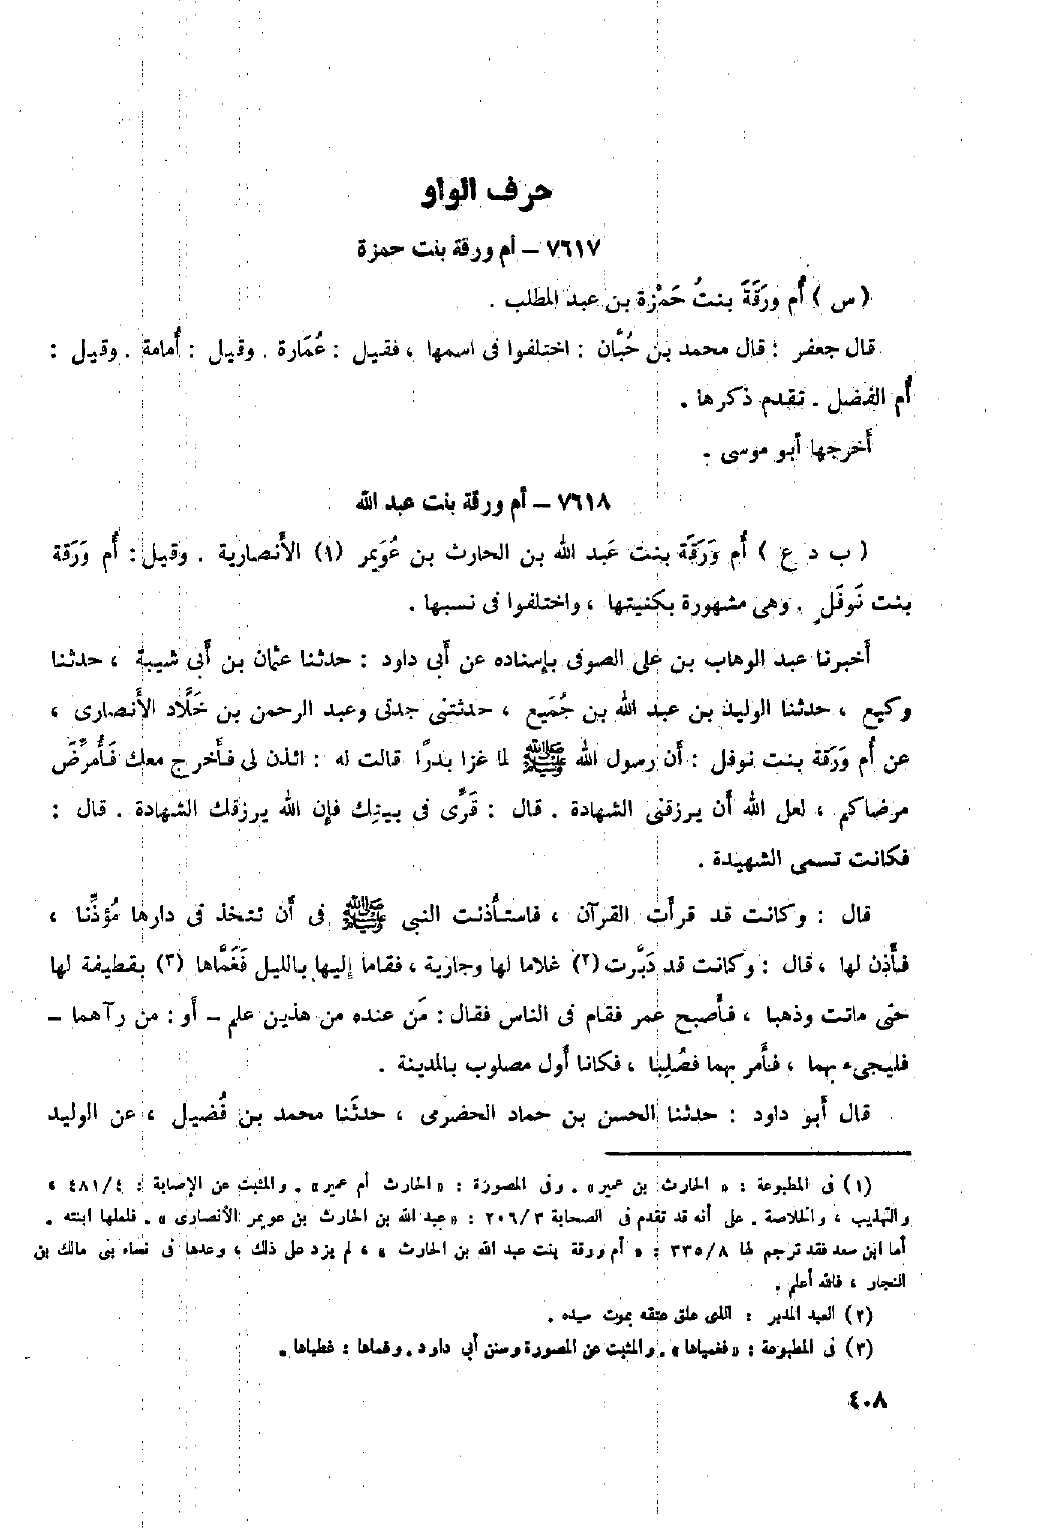 حرف الواو
٧٦١٧ – أم ورقة بنت حمزة
( س ) أُم ورَقَةَ بنتُ حَمْزة بن عبد المطلب .
قال جعفر : قال محمد بن حُبَّان : اختلفوا فى اسمها ، فقيل : عُمَارة . وقيل : أُمامة . وقيل :
أُم الفضل . تقدم ذكرها .
أَخرجها أَبو موسى .
٧٦١٨ – أم ورقة بنت عبد الله
( ب د ع ) أُم وَرَقَة بنت عَبد الله بن الحارث بن عُوَيمر (١) الأَنصارية . وقيل : أُم وَرَقة
بنت نَوفَلٍ . وهى مشهورة بكنيتها ، واختلفوا فى نسبها .
أَخبرنا عبد الوهاب بن على الصوفى بإسناده عن أَبى داود : حدثنا عثمان بن أَبى شيبة ، حدثنا
وكيع ، حدثنا الوليد بن عبد الله بن جُمَيع ، حدثتنى جدتى وعبد الرحمن بن خَلَّاد الأَنصارى ،
عن أُم وَرَقة بنت نوفل : أَن رسول الله ﷺ لما غزا بدرًا قالت له : ائذن لى فأَخرج معك فَأُمرِّضَ
مرضاكم ، لعل الله أَن يرزقنى الشهادة . قال : قَرِّى فى بيتِك فإن الله يرزقك الشهادة . قال :
فكانت تسمى الشهيدة .
قال : وكانت قد قرأَت القرآن ، فاستأْذنت النبى ﷺ فى أَن تتخذ فى دارها مُؤذِّنا ،
فأَذِن لها ، قال : وكانت قد دَبَّرت (٢) غلاما لها وجارية ، فقاما إليها بالليل فَغَمَّاها (٣) بقطيفة لها
حتى ماتت وذهبا ، فأَصبح عمر فقام فى الناس فقال : مَن عنده من هذين علم – أَو : من رآهما –
فليجىء بهما ، فأَمر بهما فصُلِبا ، فكانا أَول مصلوب بالمدينة .
قال أَبو داود : حدثنا الحسن بن حماد الحضرمى ، حدثَنا محمد بن فُضيل ، عن الوليد
(١) فى المطبوعة : « الحارث بن عمير » . وفى المصورة : « الحارث أم عمير » . والمثبت عن الإصابة : ٤/٤٨١ ،
والتهذيب ، والخلاصة . على أنه قد تقدم فى الصحابة ٣/٢٠٦ : « عبد الله بن الحارث بن عويمر الأنصارى » . فلعلها ابنته .
أما ابن سعد فقد ترجم لها ٨/٣٣٥ : « أم ورقة بنت عبد الله بن الحارث » ، لم يزد على ذلك ، وعدها فى نساء بنى مالك بن
النجار ، فالله أعلم .
(٢) العبد المدبر : الذى علق عتقه بموت سيده .
(٣) فى المطبوعة : « فغمياها » . والمثبت عن المصورة وسنن أبى داود . وغماها : غطياها .
٤٠٨